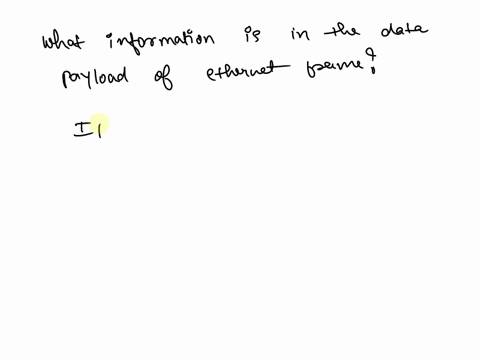 what information is in the data
payload of ethernet frame?
I